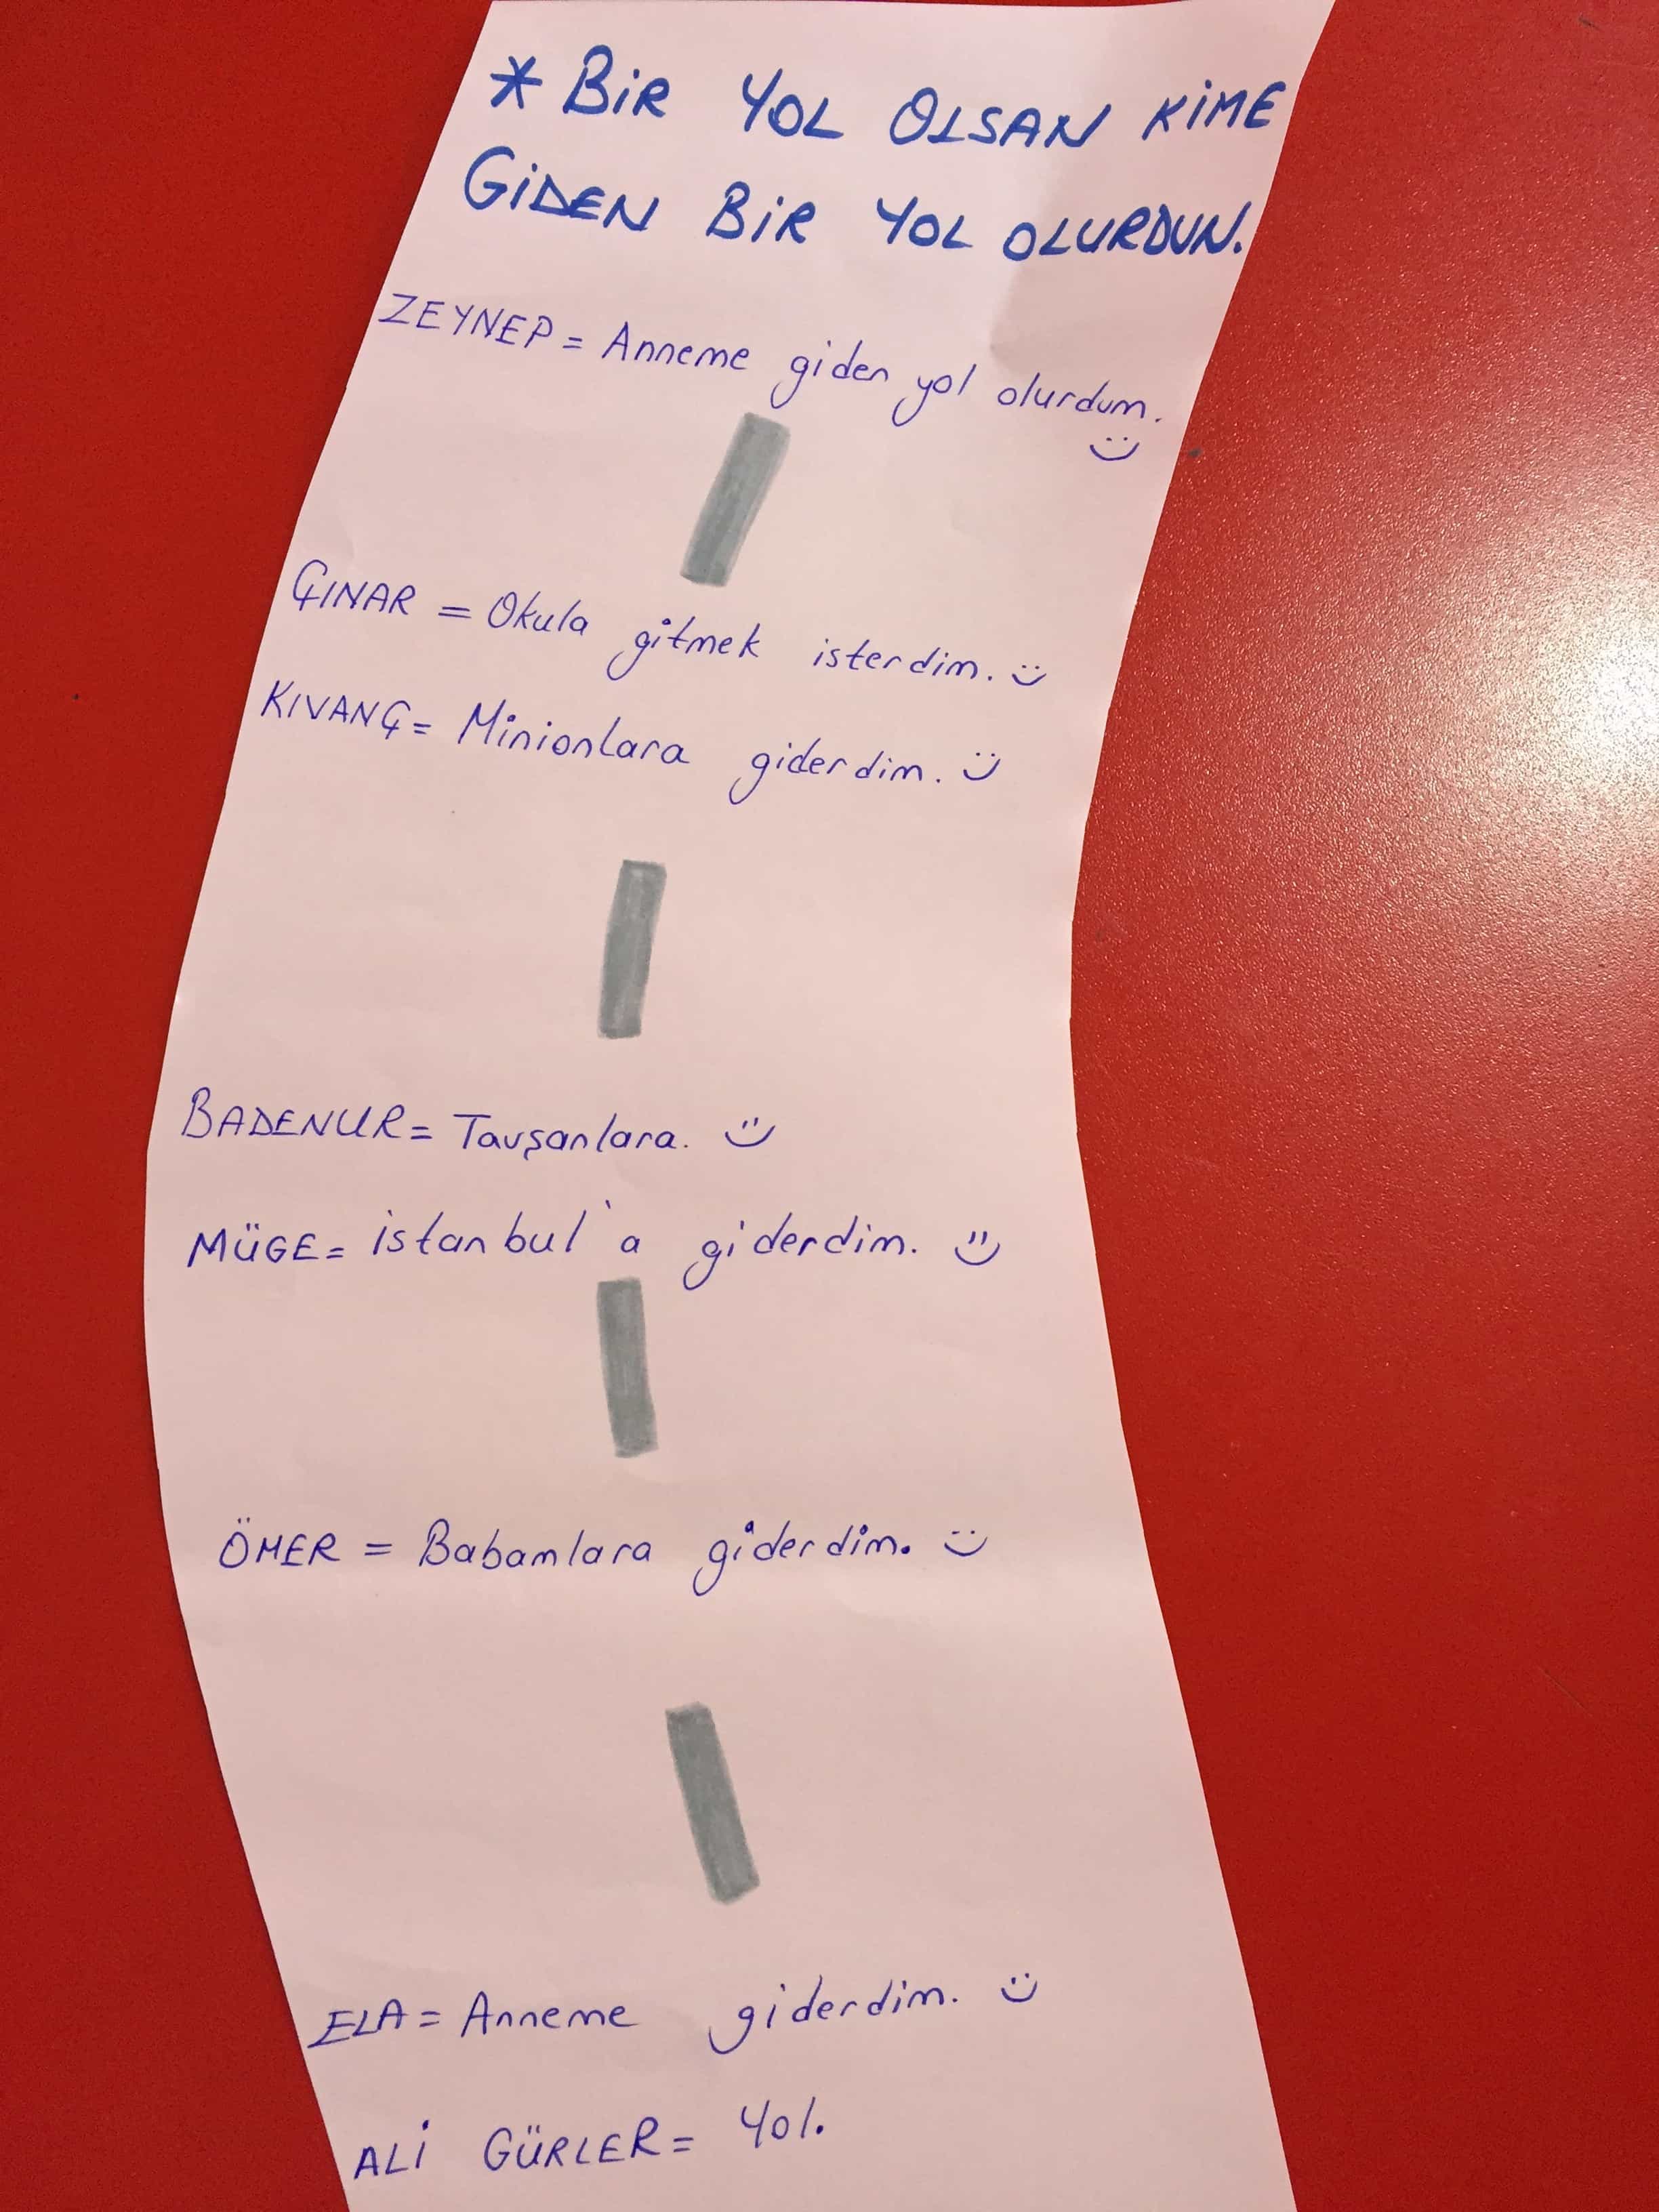 * BİR YOL OLSAN KİME
GİDEN BİR YOL OLURDUN.
ZEYNEP = Anneme giden yol olurdum.
ÇINAR = Okula gitmek isterdim.
KIVANÇ = Minionlara giderdim.
BADENUR = Tavşanlara.
MÜGE = İstanbul'a giderdim.
ÖMER = Babamlara giderdim.
ELA = Anneme giderdim.
ALİ GÜRLER = Yol.